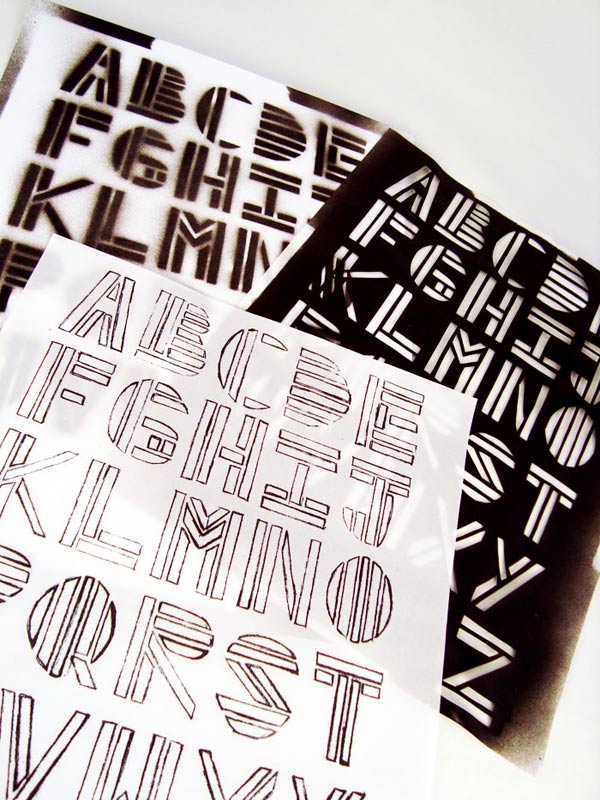 ABCDE
FGHI
KLMN
ABCD
FGHIJ
KLMNO
ST
XY
Z
ABCDE
FGHIJ
KLMNO
PQRST
VWXY